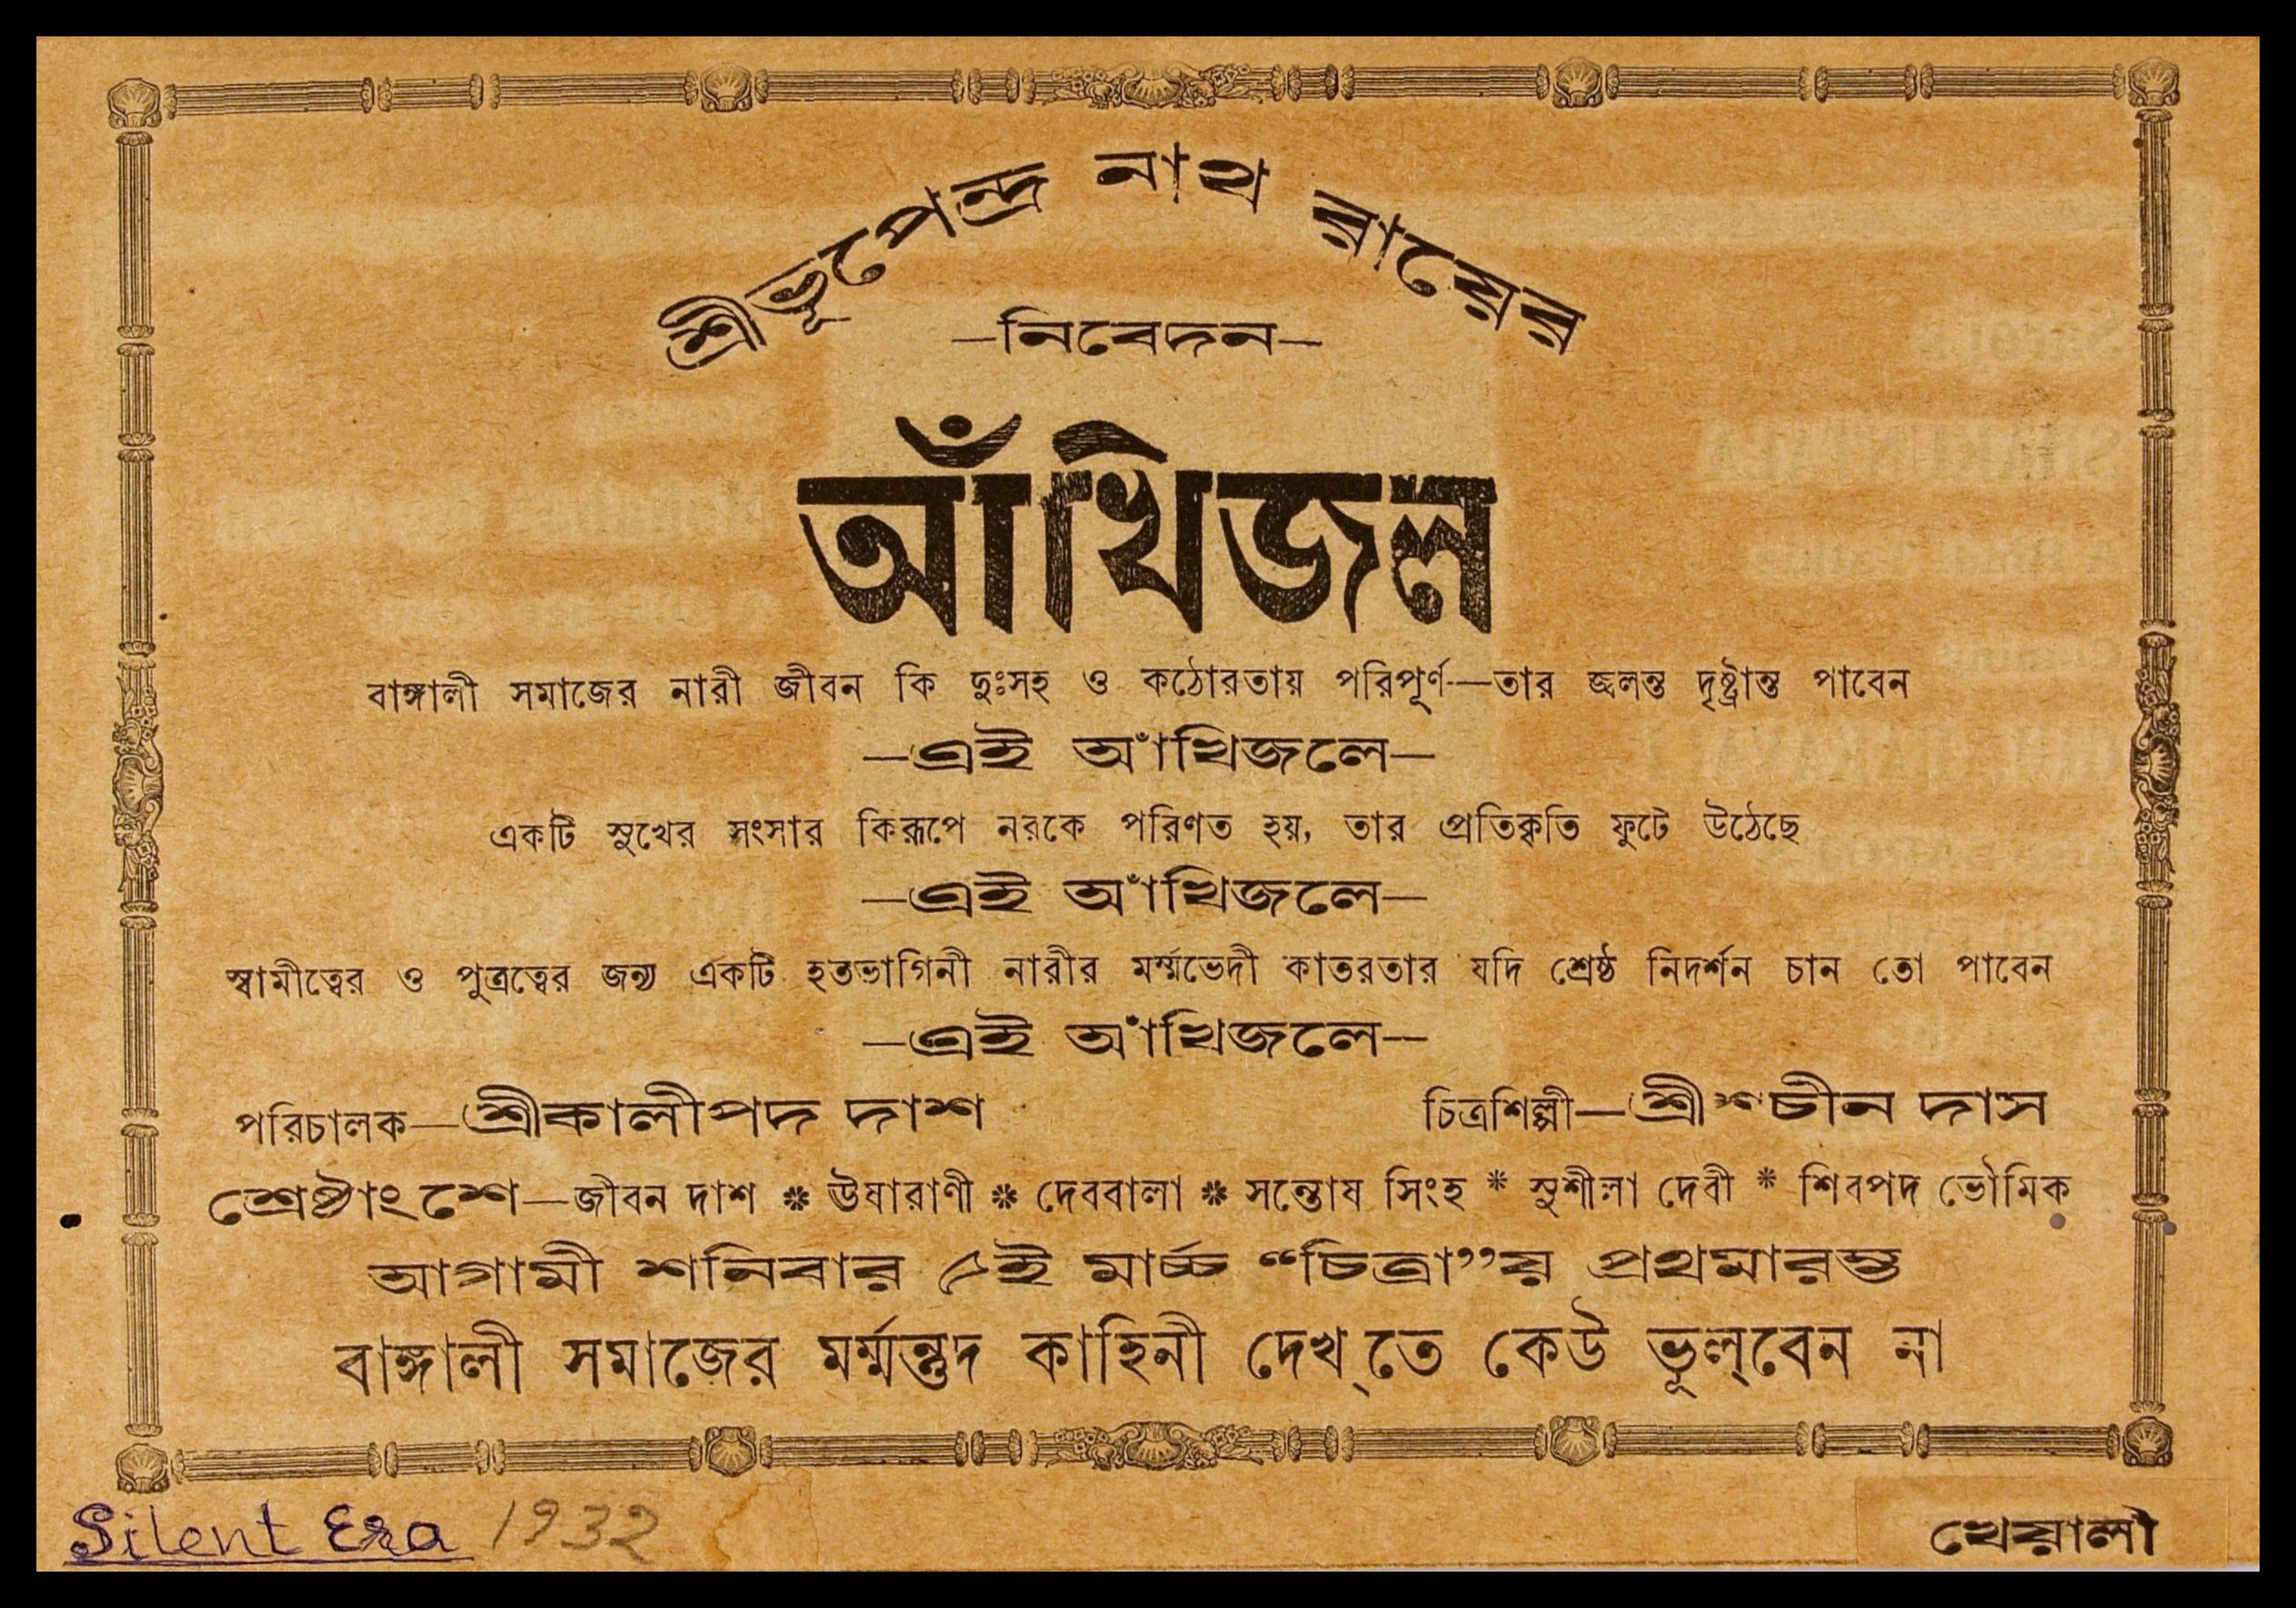 শ্রীভূপেন্দ্র নাথ রায়ের
—নিবেদন—
আঁখিজল
বাঙ্গালী সমাজের নারী জীবন কি দুঃসহ ও কঠোরতায় পরিপূর্ণ—তার জ্বলন্ত দৃষ্টান্ত পাবেন
—এই আঁখিজলে—
একটি সুখের সংসার কিরূপে নরকে পরিণত হয়, তার প্রতিকৃতি ফুটে উঠেছে
—এই আঁখিজলে—
স্বামীত্বের ও পুত্রত্বের জন্য একটি হতভাগিনী নারীর মর্ম্মভেদী কাতরতার যদি শ্রেষ্ঠ নিদর্শন চান তো পাবেন
—এই আঁখিজলে—
পরিচালক—শ্রীকালীপদ দাশ চিত্রশিল্পী—শ্রীশচীন দাস
শ্রেষ্ঠাংশে—জীবন দাশ * ঊষারাণী * দেববালা * সন্তোষ সিংহ * সুশীলা দেবী * শিবপদ ভৌমিক
আগামী শনিবার ৫ই মার্চ্চ “চিত্রা”য় প্রথমারম্ভ
বাঙ্গালী সমাজের মর্ম্মন্তুদ কাহিনী দেখ্‌তে কেউ ভূল্‌বেন না
Silent Era 1932
খেয়ালী